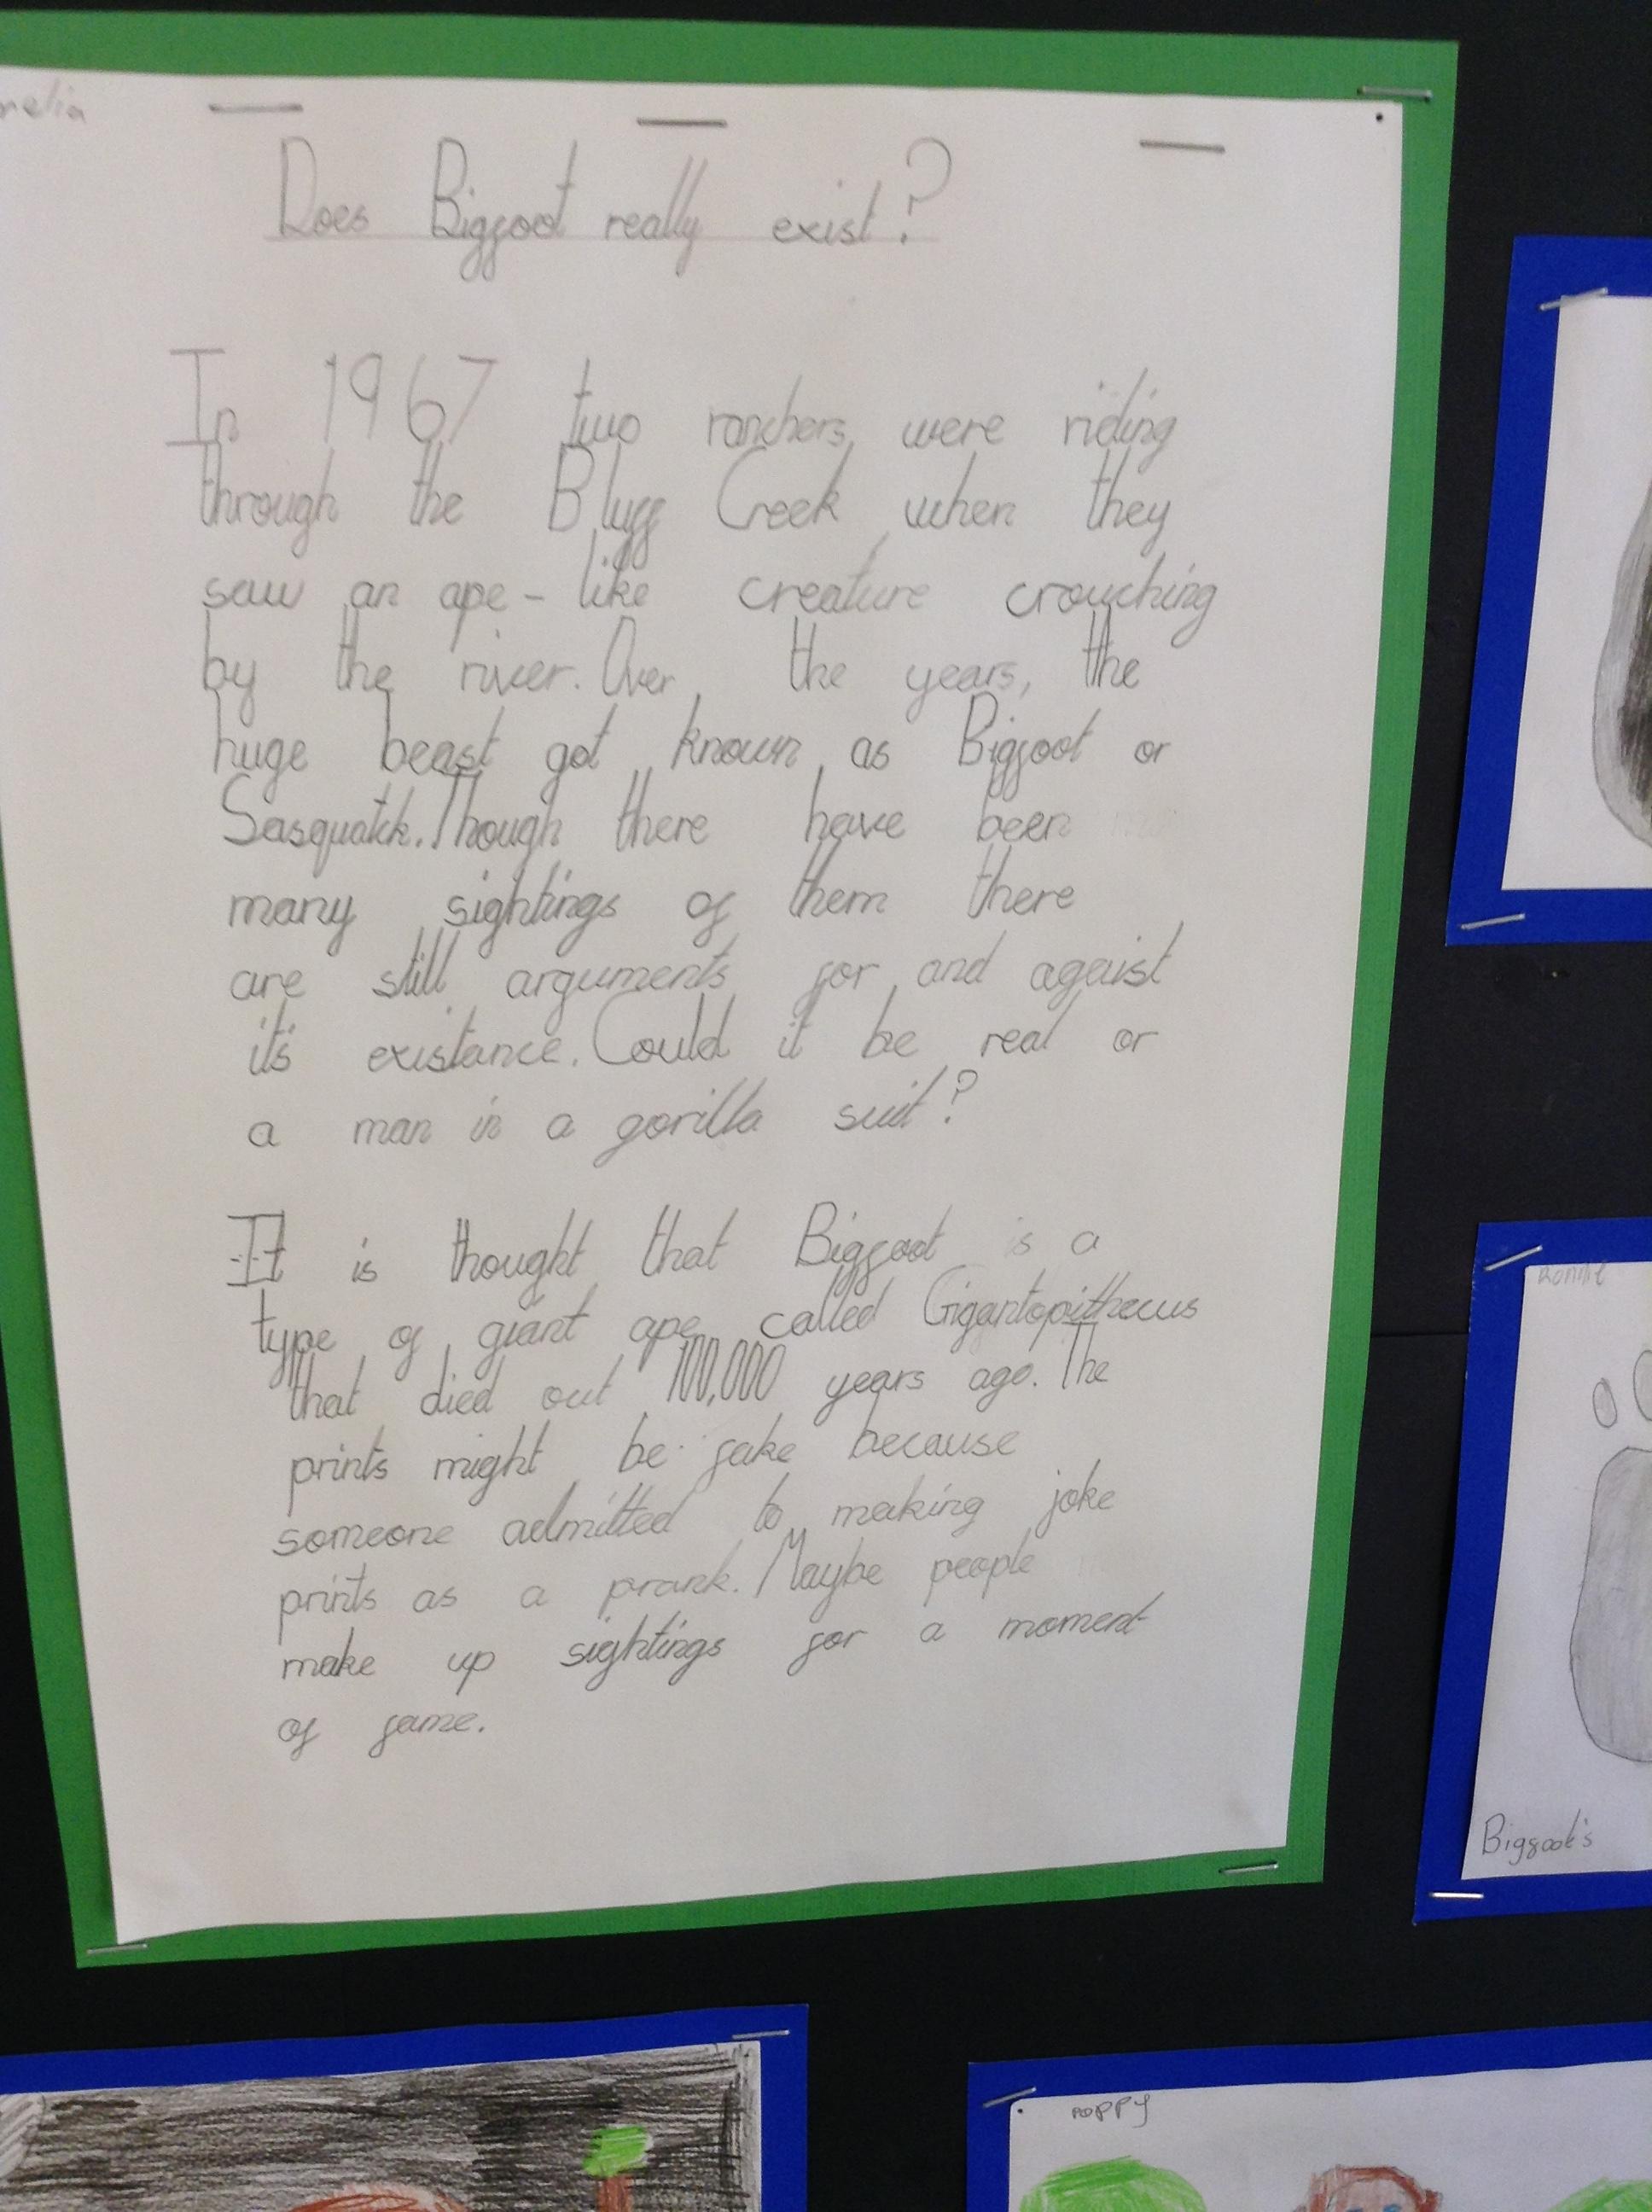 Does Bigfoot really exist?
In 1967 two ranchers were riding
through the Bluff Creek when they
saw an ape-like creature crouching
by the river. Over the years, the
huge beast got known as Bigfoot or
Sasquatch. Though there have been
many sightings of them there
are still arguments for and agaist
it's existance. Could it be real or
a man in a gorilla suit?
It is thought that Bigfoot is a
type of giant ape called Gigantopithecus
that died out 100,000 years ago. The
prints might be fake because
someone admitted to making joke
prints as a prank. Maybe people
make up sightings for a moment
of fame.
Bigfoot's
POPPY